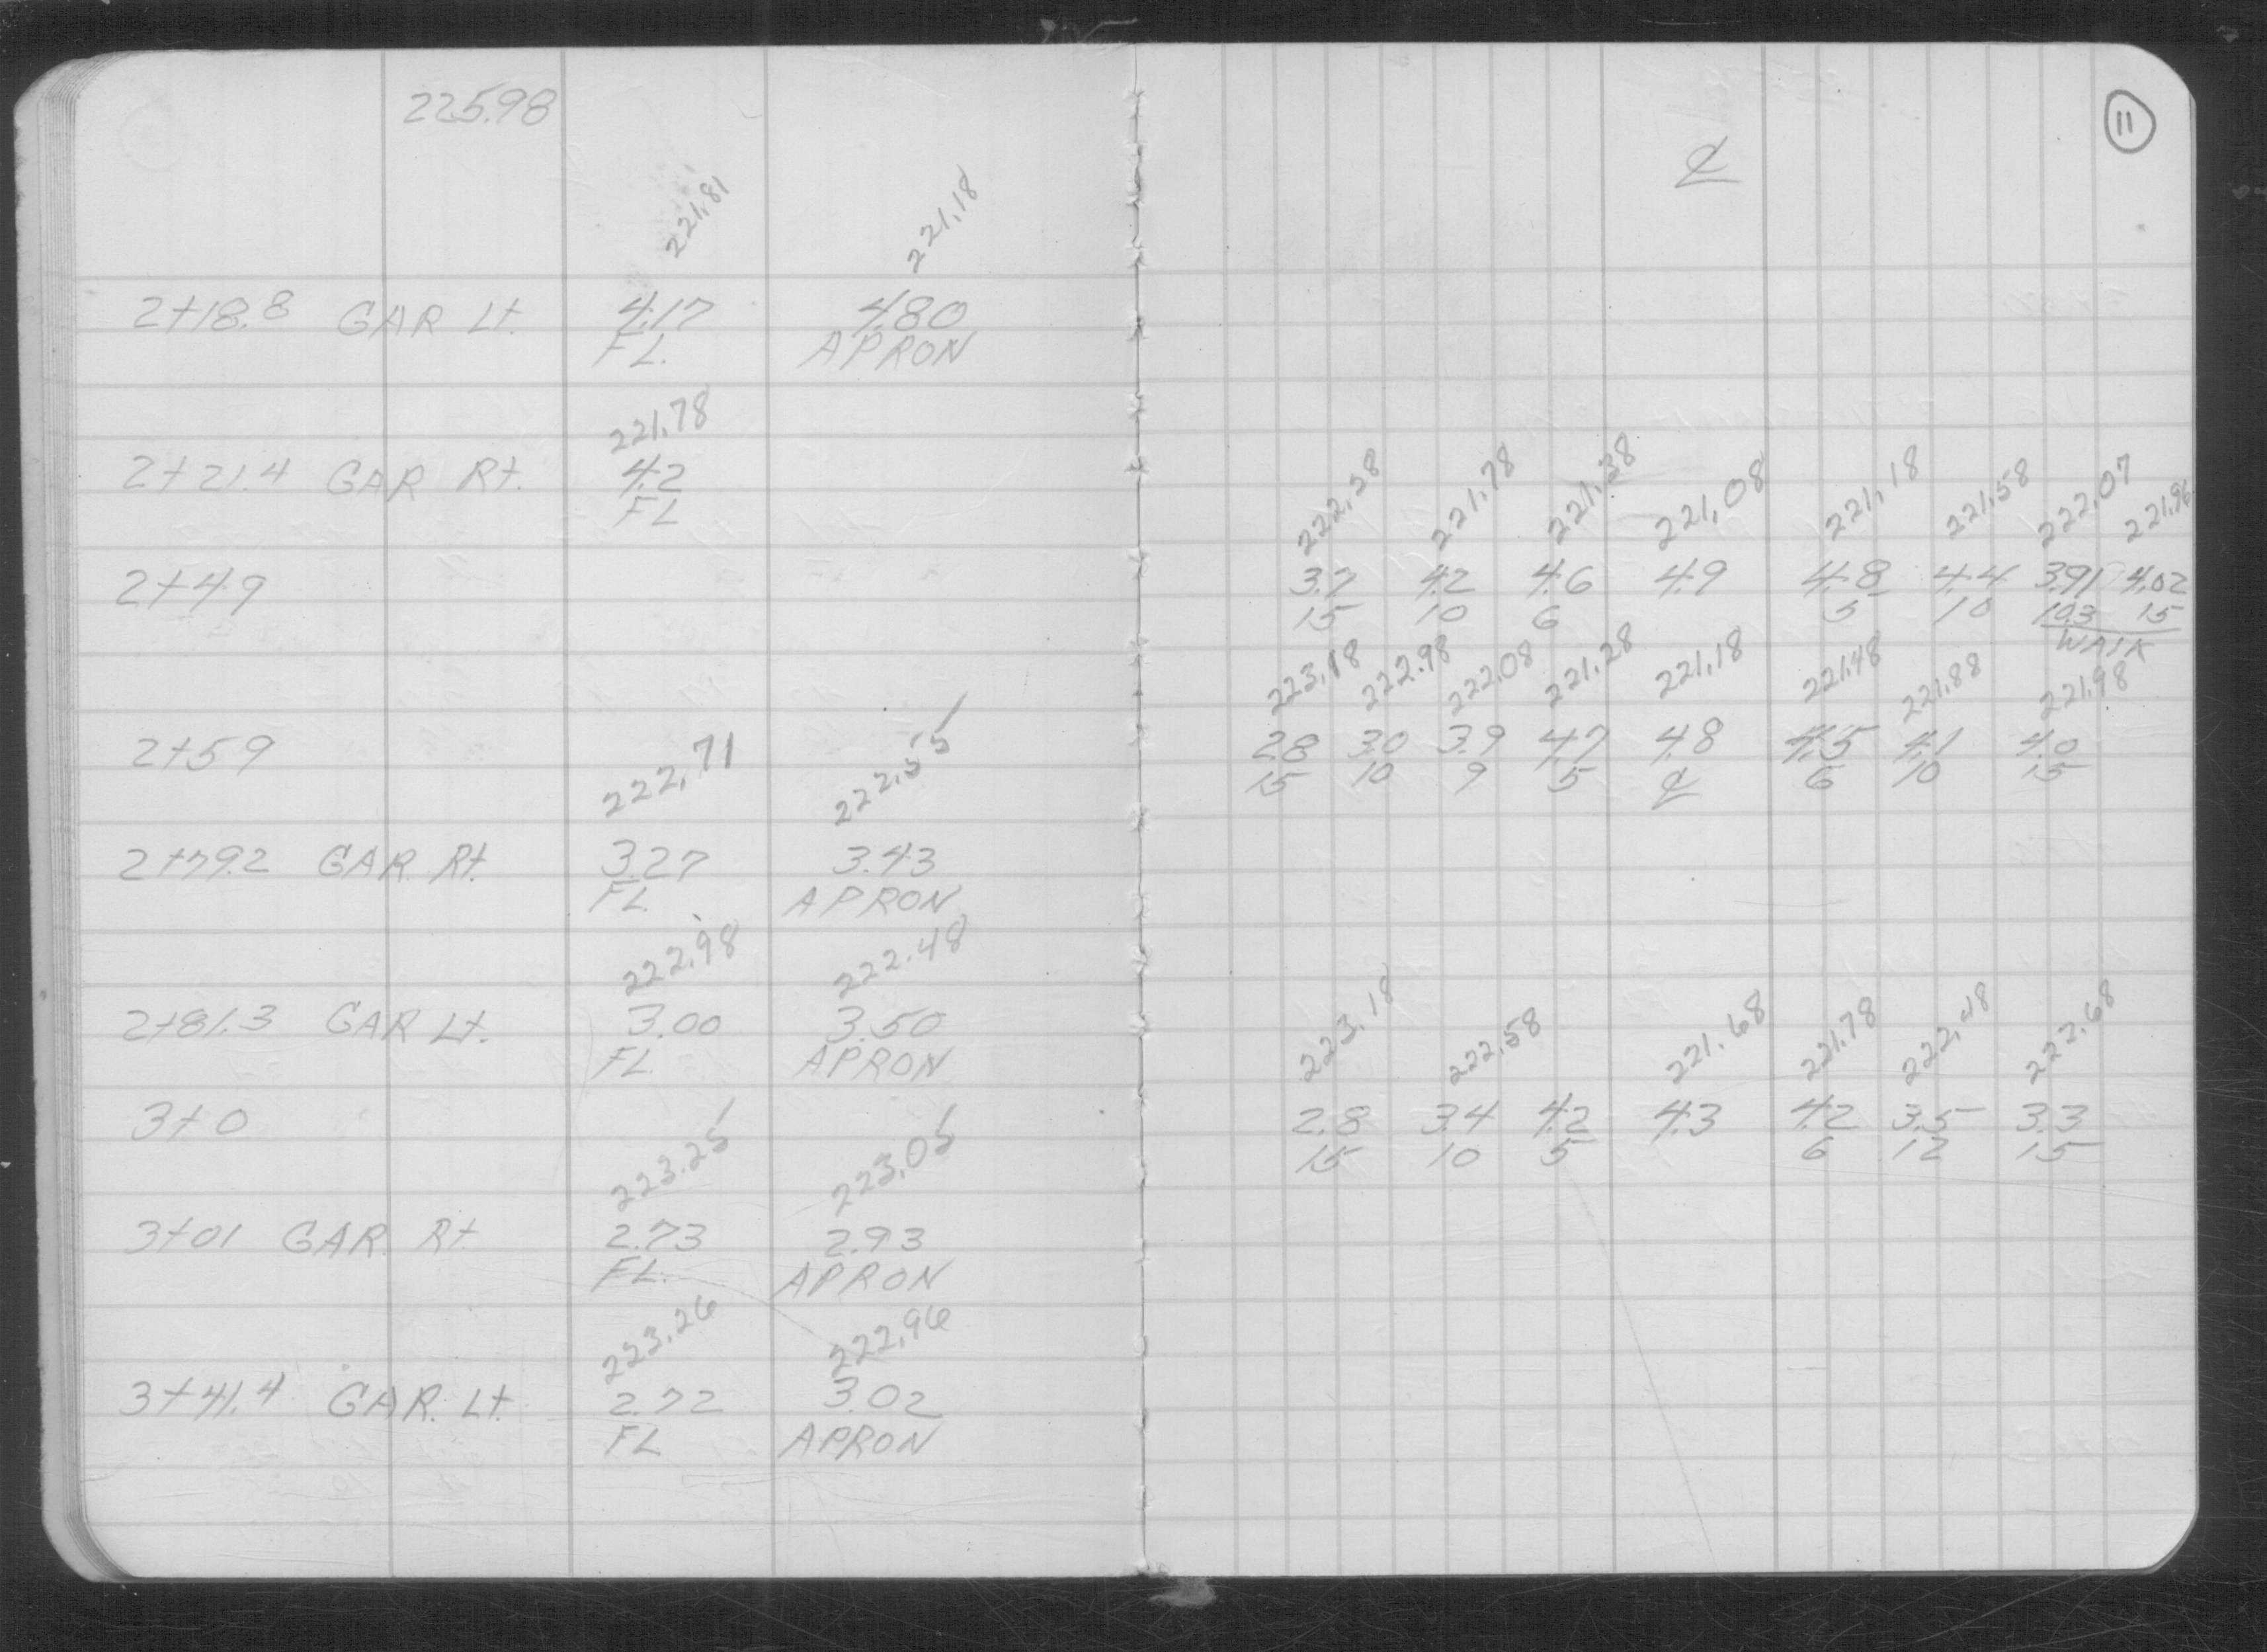 225.98
221.81 221.18
2+18.8 GAR Lt. 4.17 4.80
FL. APRON
221.78
2+21.4 GAR Rt. 4.2
FL
2+49
2+59
222.71 222.55
2+79.2 GAR Rt. 3.27 3.43
FL. APRON
222.98 222.48
2+81.3 GAR Lt. 3.00 3.50
FL APRON
3+0
223.25 223.05
3+01 GAR Rt. 2.73 2.93
FL. APRON
223.26 222.96
3+41.4 GAR. Lt. 2.72 3.02
FL APRON
11
℄
221.78 221.38 221.08 221.18 221.58 222.07 221.96
3.7 4.2 4.6 4.9 4.8 4.4 3.91 4.02
15 10 6 5 10 10.3 15
WALK
223.18 222.98 222.08 221.28 221.18 221.48 221.88 221.98
2.8 3.0 3.9 4.7 4.8 4.5 4.1 4.0
15 10 9 5 ℄ 6 10 15
223.18 222.58 221.68 221.78 222.48 222.68
2.8 3.4 4.2 4.3 4.2 3.5 3.3
15 10 5 6 12 15